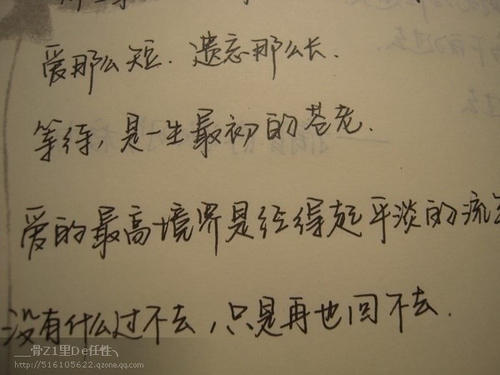 爱那么短. 遗忘那么长.
等待, 是一生最初的苍老.
爱的最高境界是经得起平淡的流
没有什么过不去, 只是再也回不去.
___骨Z1里De任性
http://516105622.qzone.qq.com